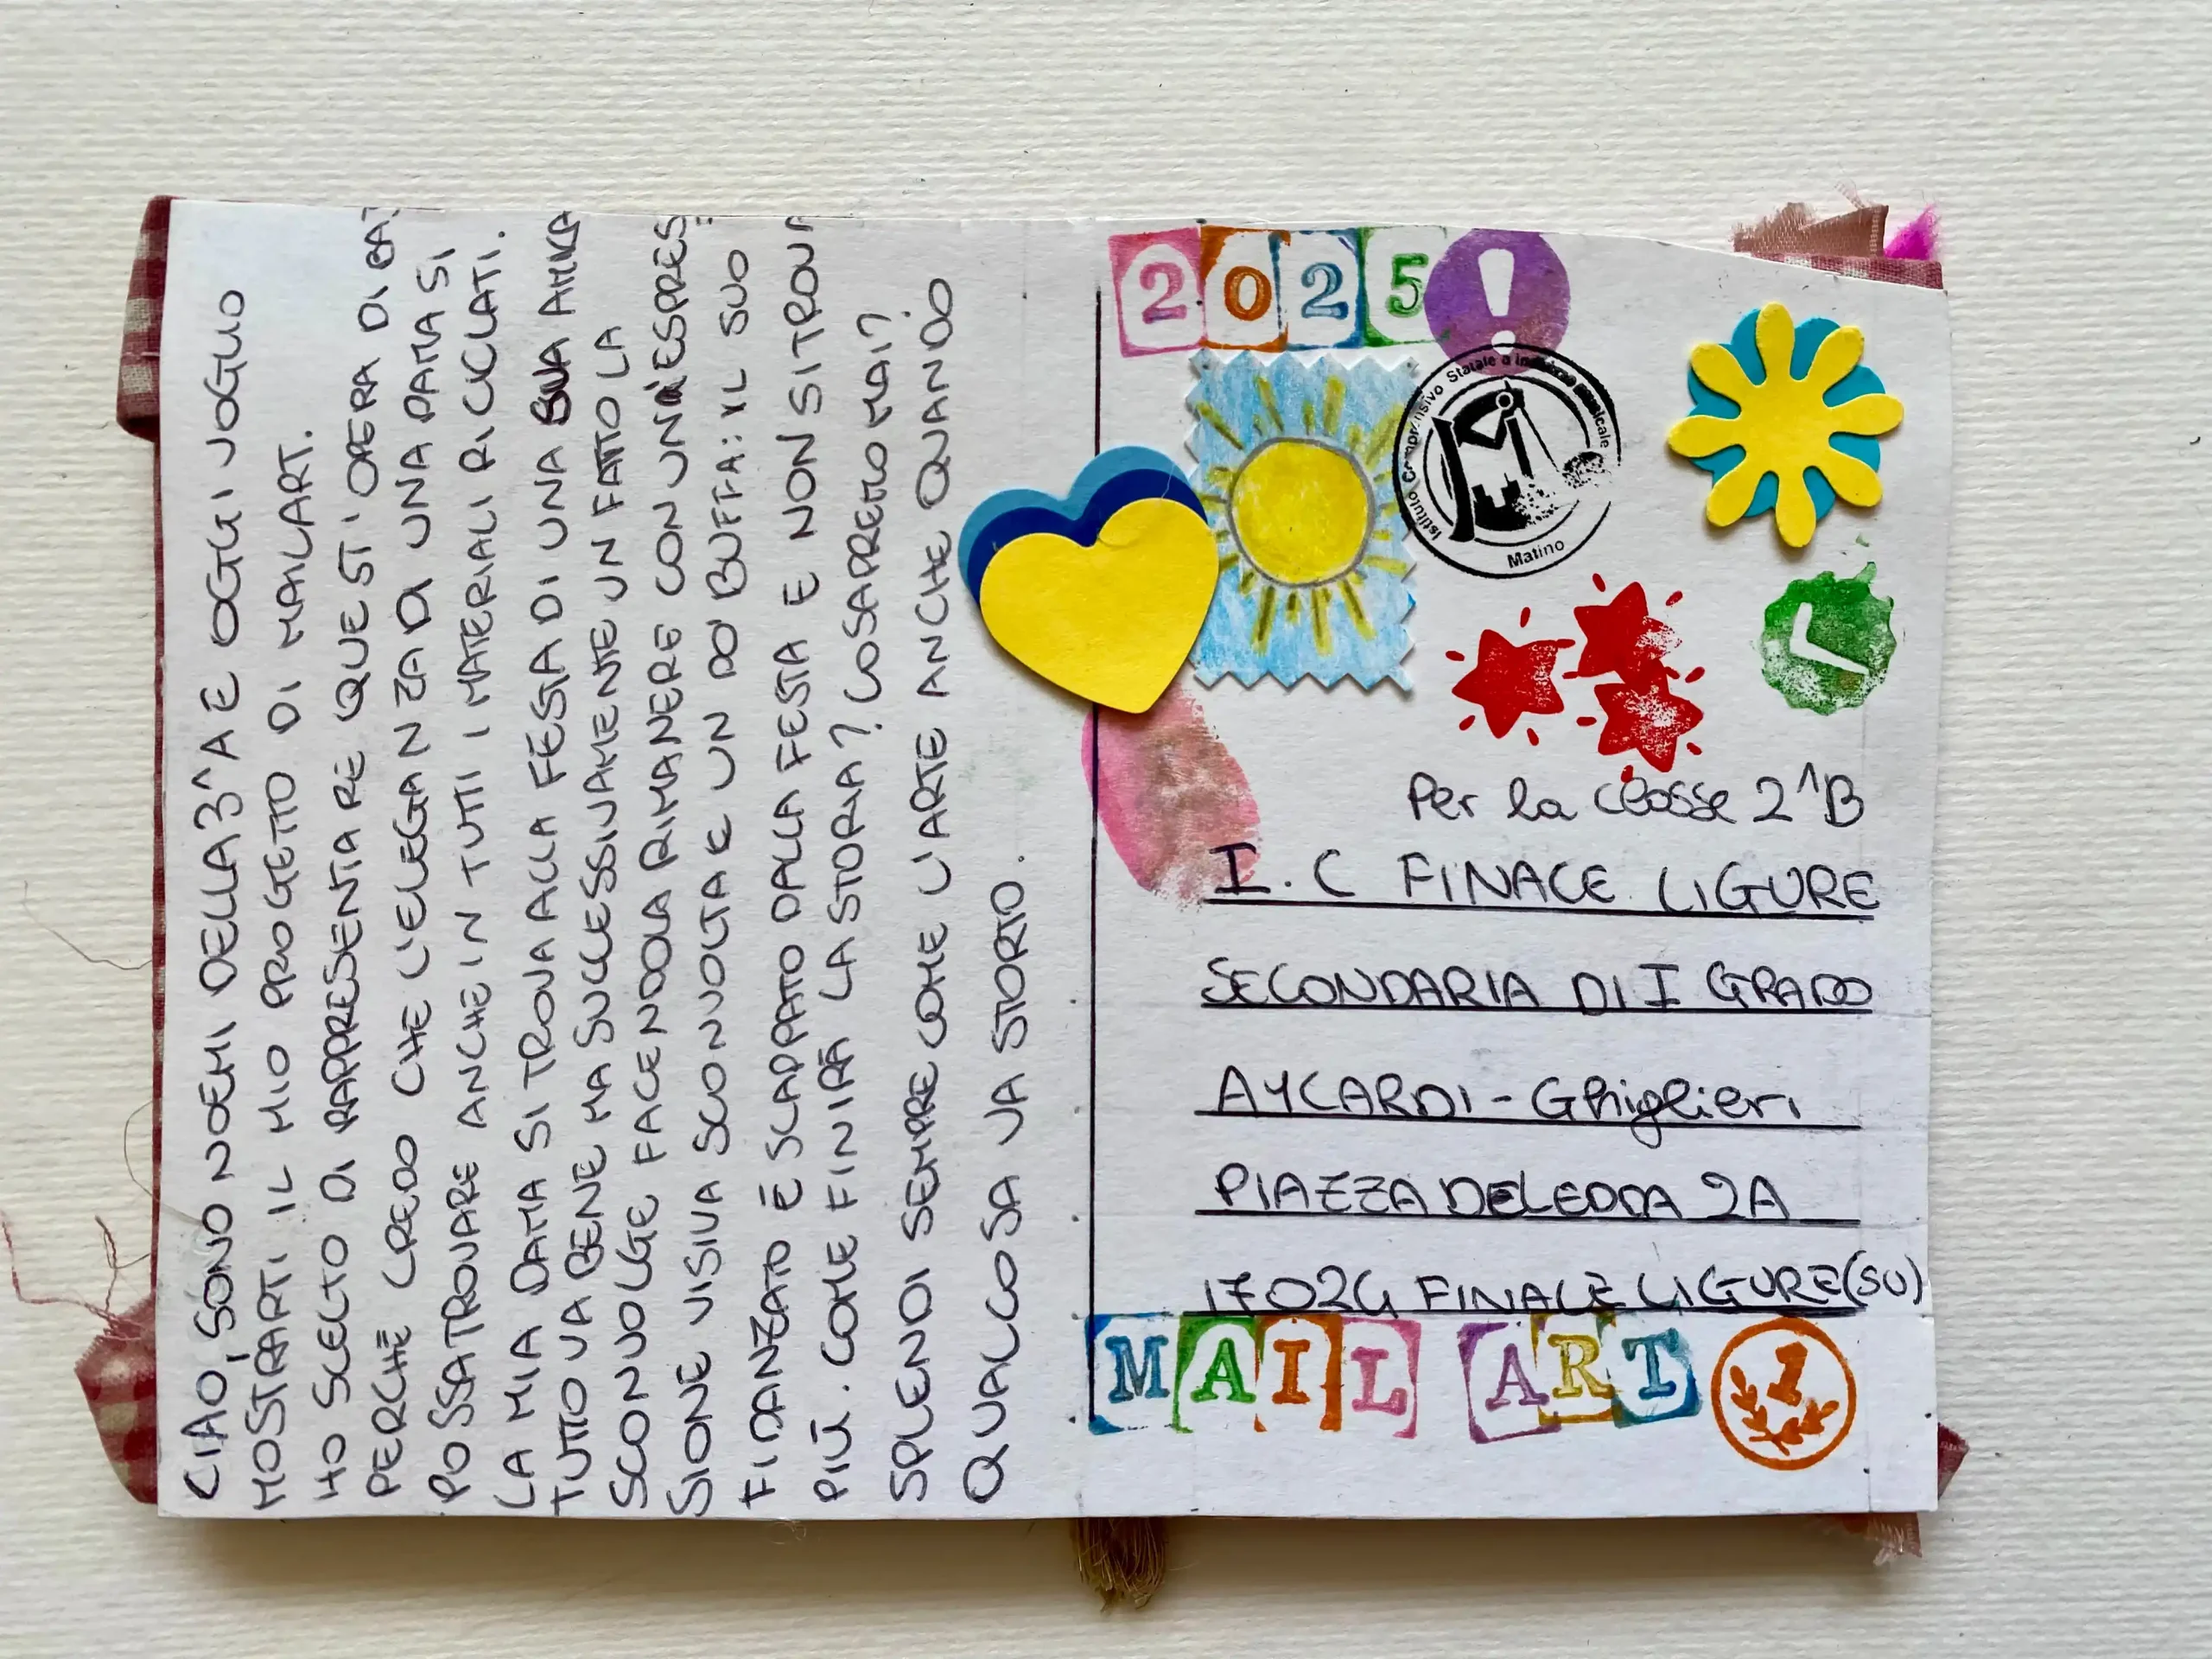 CIAO, SONO NOEMI DELLA 3^A E OGGI VOGLIO
MOSTRARTI IL MIO PROGETTO DI MAILART.
HO SCELTO DI RAPPRESENTARE QUEST'OPERA DI
PERCHÈ CREDO CHE L'ELEGANZA DI UNA DAMA SI
POSSA TROVARE ANCHE IN TUTTI I MATERIALI RICICLATI.
LA MIA DAMA SI TROVA ALLA FESTA DI UNA SUA AMICA
TUTTO VA BENE MA SUCCESSIVAMENTE UN FATTO LA
SCONVOLGE FACENDOLA RIMANERE CON UN'ESPRES
SIONE VISIVA SCONVOLTA E UN PO' BUFFA: IL SUO
FIDANZATO È SCAPPATO DALLA FESTA E NON SI TROVA
PIÙ. COME FINIRÀ LA STORIA? LO SAPREMO MAI?
SPLENDI SEMPRE COME L'ARTE ANCHE QUANDO
QUALCOSA VA STORTO.
2025!
Istituto Comprensivo Statale a indirizzo musicale
Matino
Per la classe 2^B
I.C FINALE LIGURE
SECONDARIA DI I GRADO
AYCARDI-Ghiglieri
PIAZZA DELEDDA 2A
17024 FINALE LIGURE(SV)
MAIL ART 1